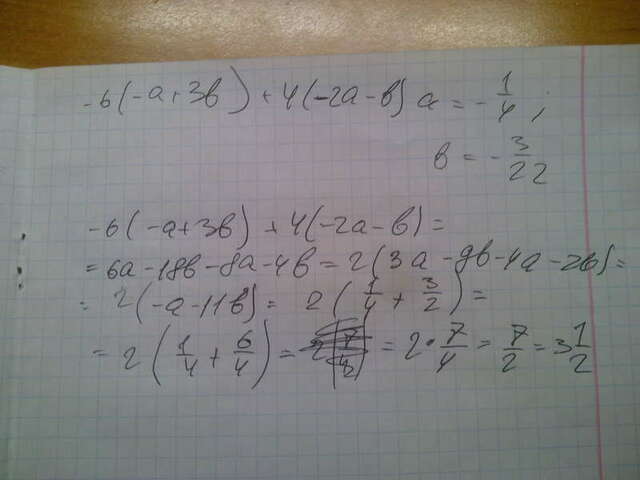 -6(-a+3b)+4(-2a-b) a=-1/4;
b=-3/22
-6(-a+3b)+4(-2a-b)=
=6a-18b-8a-4b=2(3a-9b-4a-2b)=
=2(-a-11b)=2(1/4+3/2)=
=2(1/4+6/4)=2·7/4=7/2=3 1/2